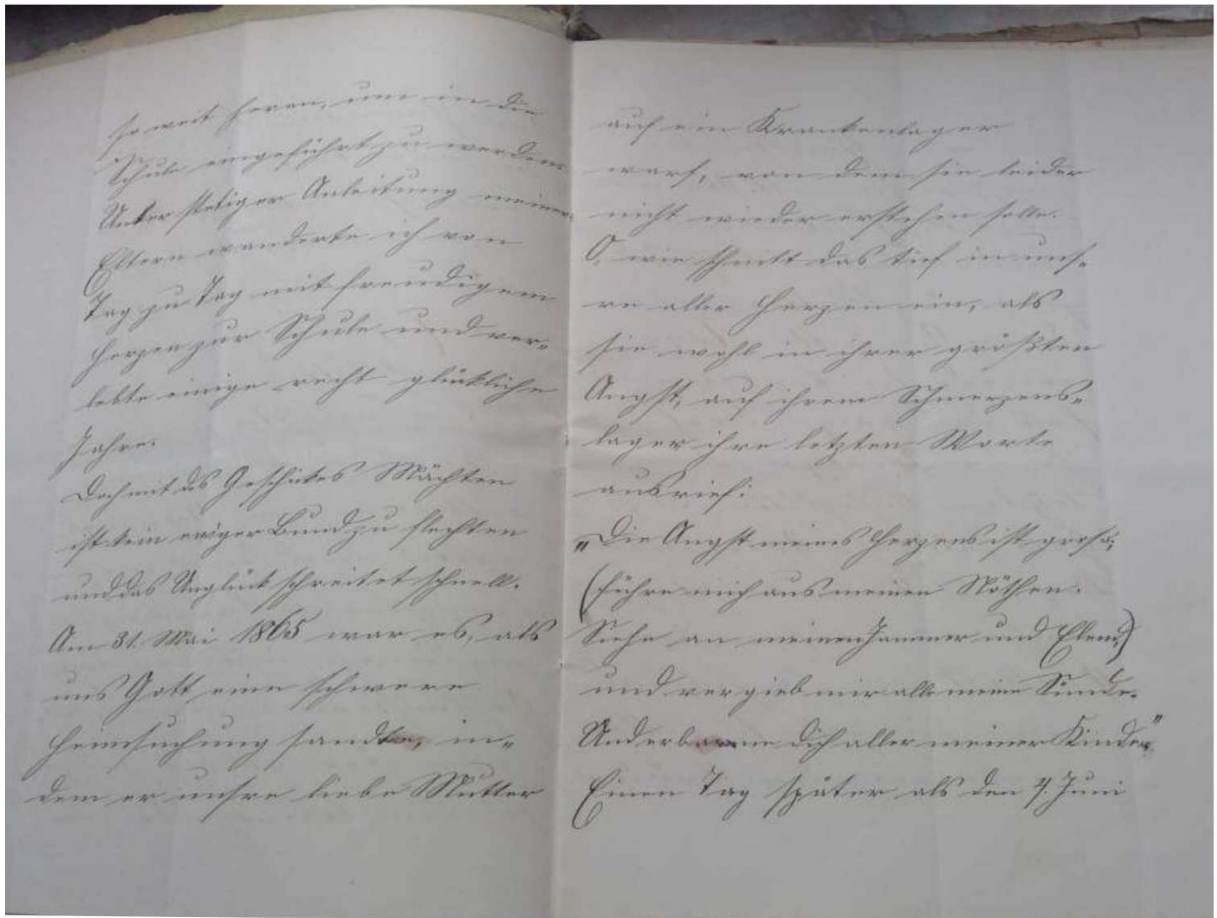 so weit heran, um in die
Schule eingeführt zu werden.
Unter stetiger Anleitung meiner
Eltern wanderte ich von
Tag zu Tag mit freudigem
Herzen zur Schule und ver-
lebte einige recht glückliche
Jahre.
Doch mit des Geschickes Mächten
ist kein ewiger Bund zu flechten
und das Unglück schreitet schnell.
Am 31. Mai 1865 war es, als
uns Gott eine schwere
Heimsuchung sandte, in-
dem er unsre liebe Mutter
auf ein Krankenlager
warf, von dem sie leider
nicht wieder erstehen sollte.
O, wie schnitt das tief in uns-
re aller Herzen ein, als
sie wohl in ihrer größten
Angst, auf ihrem Schmerzens-
lager ihre letzten Worte
ausrief:
„Die Angst meines Herzens ist groß;
(führe mich aus meinen Nöthen.
Siehe an meinen Jammer und Elend)
und vergieb mir alle meine Sünde.
Und erbarme dich aller meiner Kinder."
Einen Tag später als den 4. Juni